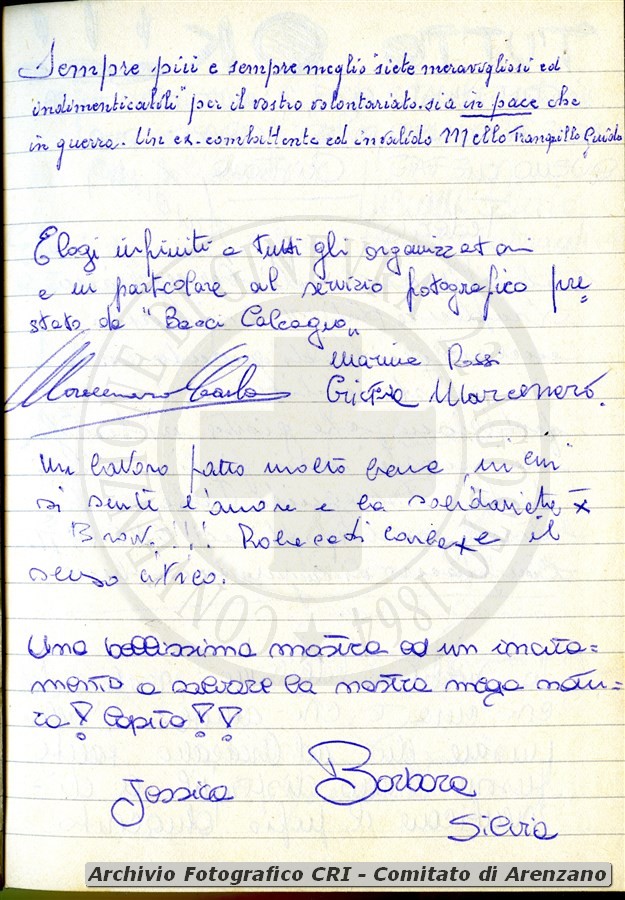 Sempre più e sempre meglio "siete meravigliosi ed
indimenticabili" per il vostro volontariato. sia in pace che
in guerra. Un ex. combattente ed invalido Mello Tranquillo Guido
Elogi infiniti a tutti gli organizzatori
e in particolare al servizio fotografico pre=
stato da "Bacci Calcagno"
Marina Rossi
Carlo Cristina Marcenaro.
Un lavoro fatto molto bene, in cui
si sente l'amore e la solidarietà x
Bravi!!! il
senso critico.
Una bellissima mostra ed un incita=
mento a salvare la nostra mega natu=
ra! Capito!!
Jessica Barbara
Silvia
CONVENZIONE DI GINEVRA 22 AGOSTO 1864
Archivio Fotografico CRI - Comitato di Arenzano